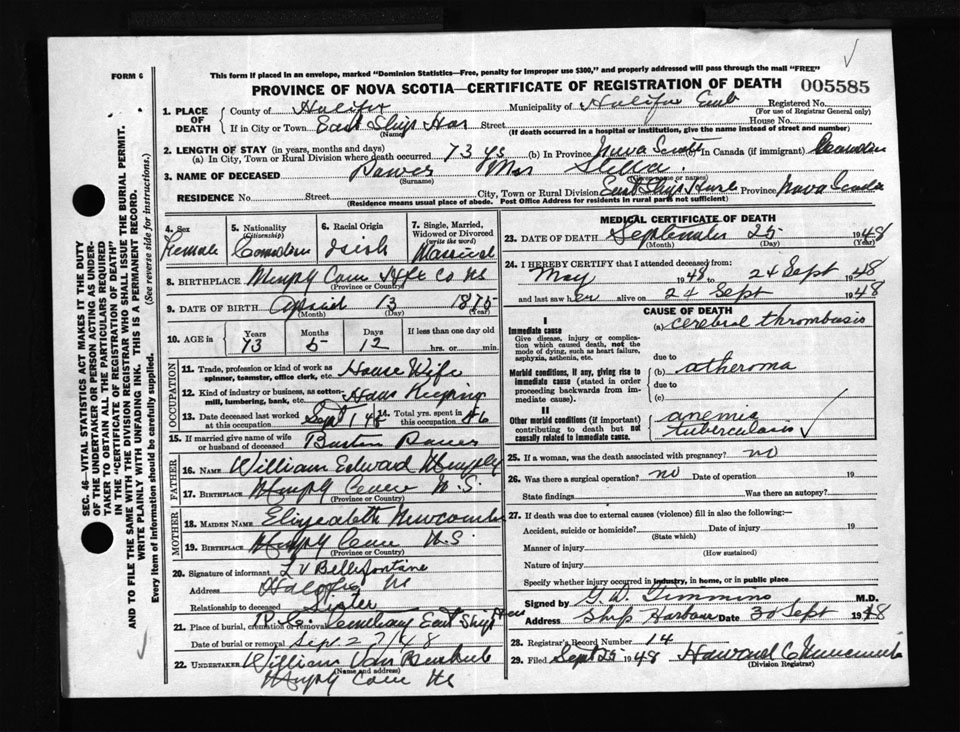 FORM 6
This form if placed in an envelope, marked "Dominion Statistics—Free, penalty for improper use $300," and properly addressed will pass through the mail "FREE"
PROVINCE OF NOVA SCOTIA—CERTIFICATE OF REGISTRATION OF DEATH 005585
1. PLACE OF DEATH County of Halifax Municipality of Halifax Registered No.
(For use of Registrar General only)
If in City or Town East Ship Har Street House No.
(Name) (If death occurred in a hospital or institution, give the name instead of street and number)
2. LENGTH OF STAY (in years, months and days)
(a) In City, Town or Rural Division where death occurred 73 ys (b) In Province Nova Scotia (c) In Canada (if immigrant) Canadian
3. NAME OF DECEASED Power Mrs Stella
(Surname) (Given name or names)
RESIDENCE No. Street City, Town or Rural Division East Ship Harb Province Nova Scotia
(Residence means usual place of abode. Post Office Address for residents in rural parts not sufficient)
4. Sex
Female
5. Nationality (Citizenship)
Canadian
6. Racial Origin
Irish
7. Single, Married, Widowed or Divorced (write the word)
Married
8. BIRTHPLACE Murphy Cove Hfx Co NS
(Province or Country)
9. DATE OF BIRTH April 13 1875
(Month) (Day) (Year)
10. AGE in Years Months Days If less than one day old
73 5 12 hrs. or min.
OCCUPATION
11. Trade, profession or kind of work as spinner, teamster, office clerk, etc. House Wife
12. Kind of industry or business, as cotton-mill, lumbering, bank, etc. Hous Keeping
13. Date deceased last worked at this occupation Sept 1 48 14. Total yrs. spent in this occupation 46
15. If married give name of wife or husband of deceased Power
FATHER
16. NAME William Edward Murphy
17. BIRTHPLACE Murphy Cove N.S.
(Province or Country)
MOTHER
18. MAIDEN NAME Elizeabeth Newcombe
19. BIRTHPLACE Murphy Cove N.S.
(Province or Country)
20. Signature of informant L V Bellefontaine
Address Halifax NS
Relationship to deceased Sister
21. Place of burial, cremation or removal R.C. Cemetary East Ship Har
Date of burial or removal Sept 27/48
22. UNDERTAKER William Van
(Name and address)
Murphy Cove NS
MEDICAL CERTIFICATE OF DEATH
23. DATE OF DEATH September 25 1948
(Month) (Day) (Year)
24. I HEREBY CERTIFY that I attended deceased from:
May 1948 24 Sept 1948
and last saw her alive on 24 Sept 1948
CAUSE OF DEATH
I
Immediate cause
Give disease, injury or complication which caused death, not the mode of dying, such as heart failure, asphyxia, asthenia, etc.
(a) cerebral thrombosis
due to
Morbid conditions, if any, giving rise to immediate cause (stated in order proceeding backwards from immediate cause).
(b) atheroma
due to
(c)
II
Other morbid conditions (if important) contributing to death but not causally related to immediate cause.
anemia
tuberculosis
25. If a woman, was the death associated with pregnancy? no
26. Was there a surgical operation? no Date of operation 19
State findings Was there an autopsy?
27. If death was due to external causes (violence) fill in also the following:—
Accident, suicide or homicide? Date of injury 19
(State which)
Manner of injury
(How sustained)
Nature of injury
Specify whether injury occurred in industry, in home, or in public place
Signed by G. D. Timmins M.D.
Address Ship Harbour Date 30 Sept 1948
28. Registrar's Record Number 14
29. Filed Sept 25 1948 Howard
(Division Registrar)
SEC. 46—VITAL STATISTICS ACT MAKES IT THE DUTY
OF THE UNDERTAKER OR PERSON ACTING AS UNDER-
TAKER TO OBTAIN ALL THE PARTICULARS REQUIRED
IN THE "CERTIFICATE OF REGISTRATION OF DEATH"
AND TO FILE THE SAME WITH THE DIVISION REGISTRAR WHO SHALL ISSUE THE BURIAL PERMIT.
WRITE PLAINLY WITH UNFADING INK. THIS IS A PERMANENT RECORD.
Every item of information should be carefully supplied. (See reverse side for instructions.)